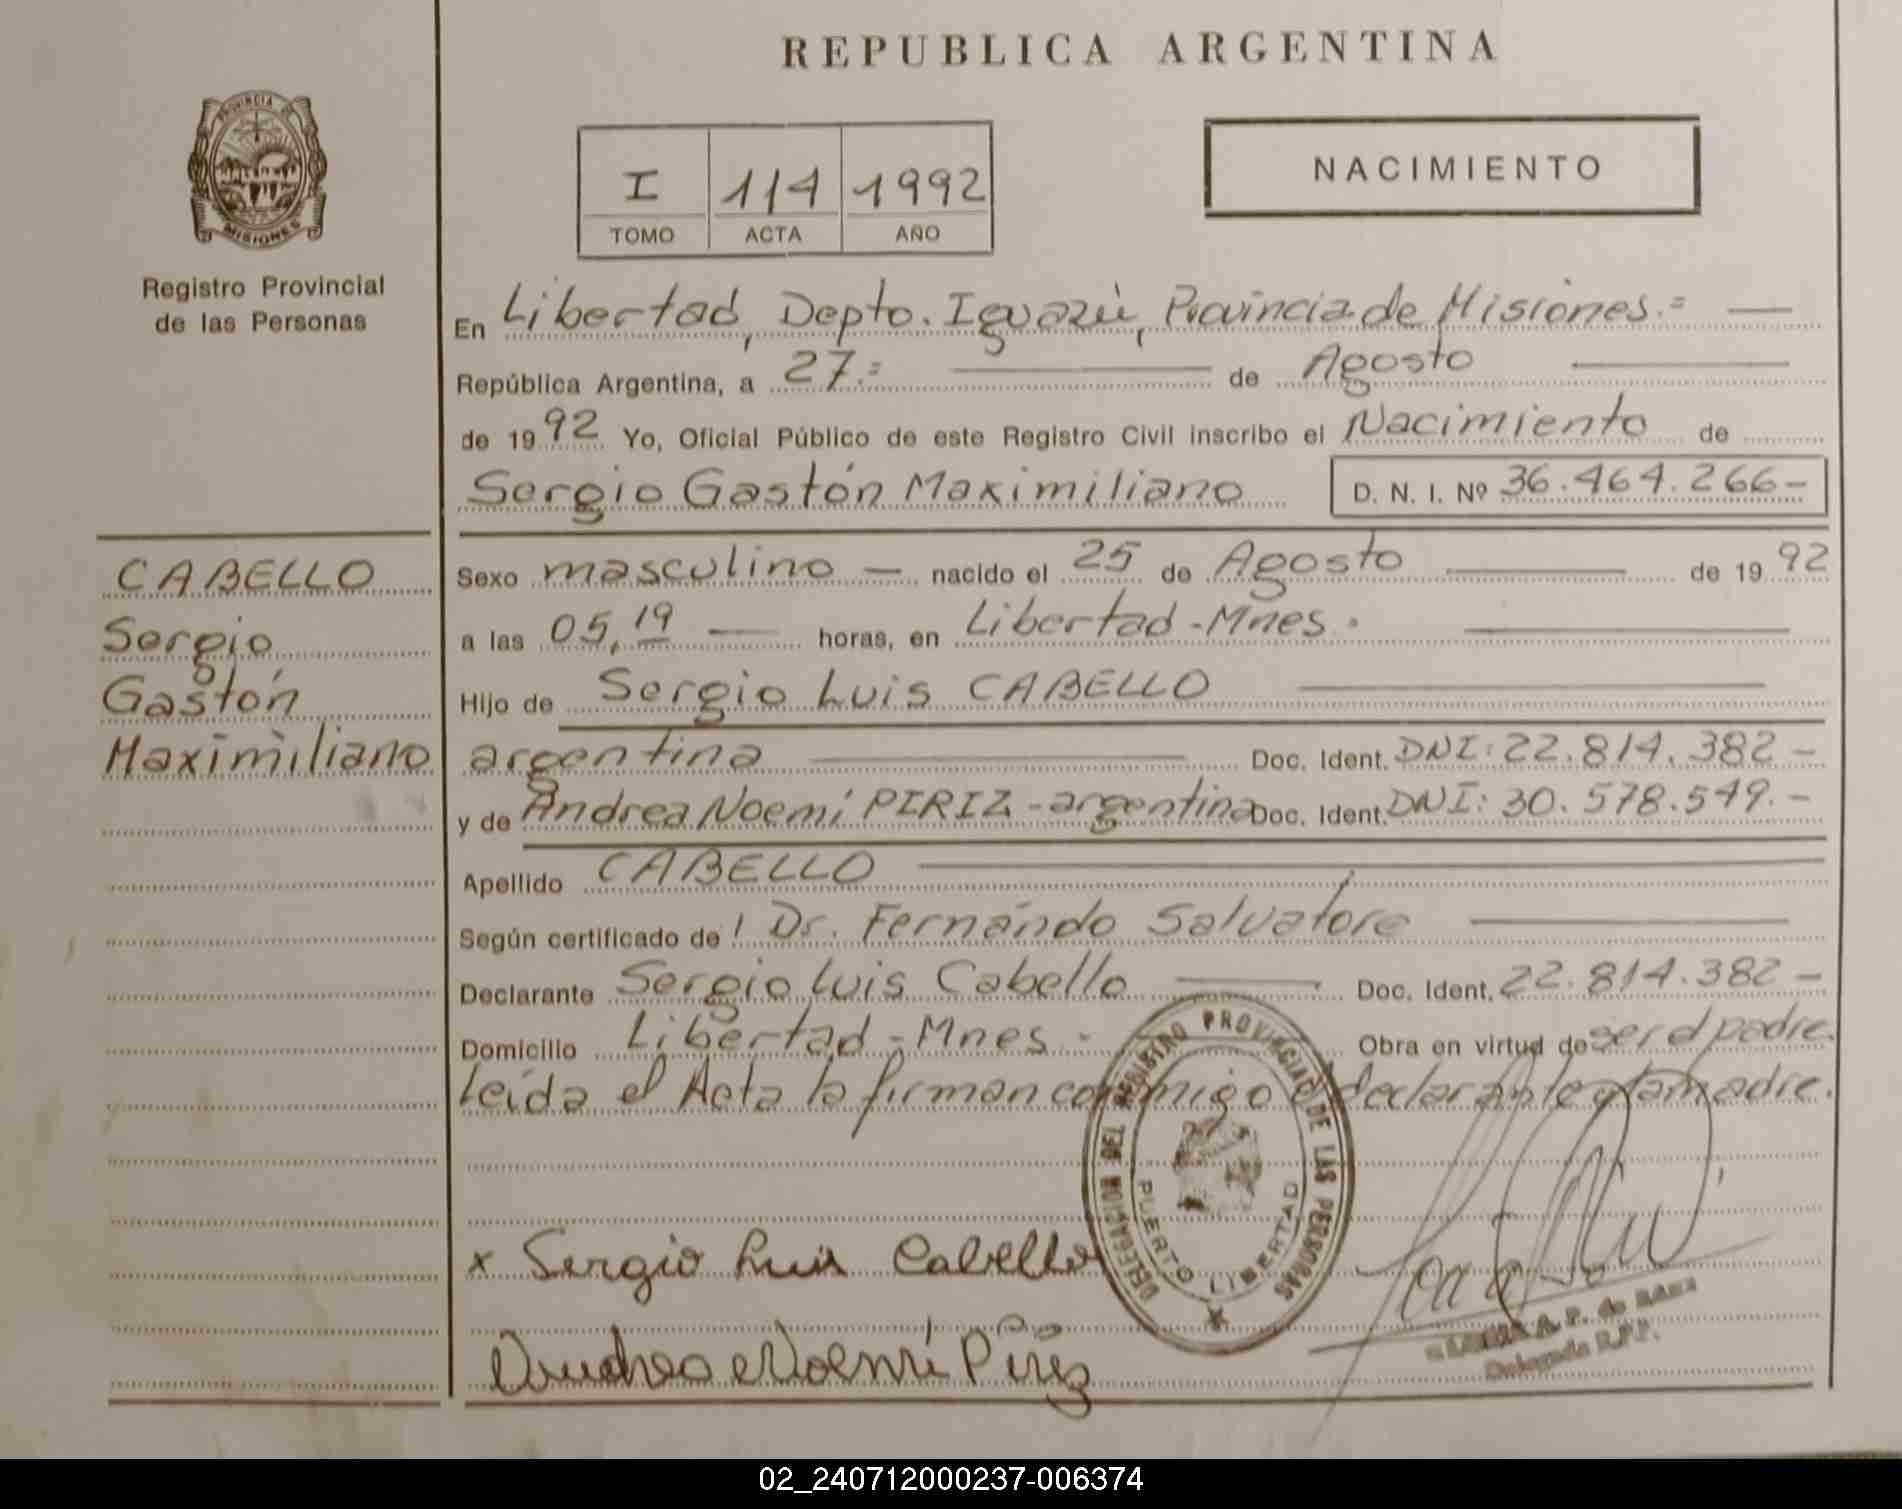 REPUBLICA ARGENTINA
PROVINCIA DE
MISIONES
Registro Provincial
de las Personas
I 114 1992
TOMO ACTA AÑO
NACIMIENTO
En Libertad, Depto. Iguazú, Provincia de Misiones.=
República Argentina, a 27.= de Agosto
de 1992 Yo, Oficial Público de este Registro Civil inscribo el Nacimiento de
Sergio Gastón Maximiliano D. N. I. Nº 36.464.266-
CABELLO
Sergio
Gastón
Maximiliano
Sexo masculino nacido el 25 de Agosto de 1992
a las 05,19 horas, en Libertad-Mnes.
Hijo de Sergio Luis CABELLO
argentina Doc. Ident. DNI: 22.814.382-
y de Andrea Noemí PIRIZ-argentina Doc. Ident. DNI: 30.578.549.-
Apellido CABELLO
Según certificado de Dr. Fernándo Salvatore
Declarante Sergio Luis Cabello Doc. Ident. 22.814.382-
Domicilio Libertad-Mnes- Obra en virtud de ser el padre.
Leída el Acta la firman conmigo declarante y la madre.
DELEGACION DEL REGISTRO PROVINCIAL DE LAS PERSONAS
PUERTO LIBERTAD
x Sergio Luis Cabello
Andrea Noemí Piriz
A. P. de
Delegada R.P.P.
02_240712000237-006374